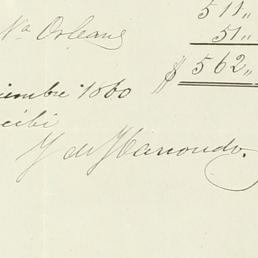 511„
Na Orleans 51„
$ 562„
iembre 1860
ecibi
Y de